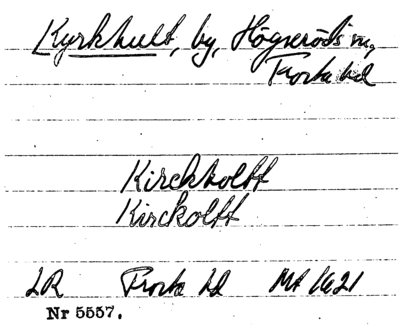 Kyrkhult, by, Högseröds sn,
Frosta hd
Kirckholtt
Kirckoltt
LR Frosta hd Mt 1621
Nr 5557.